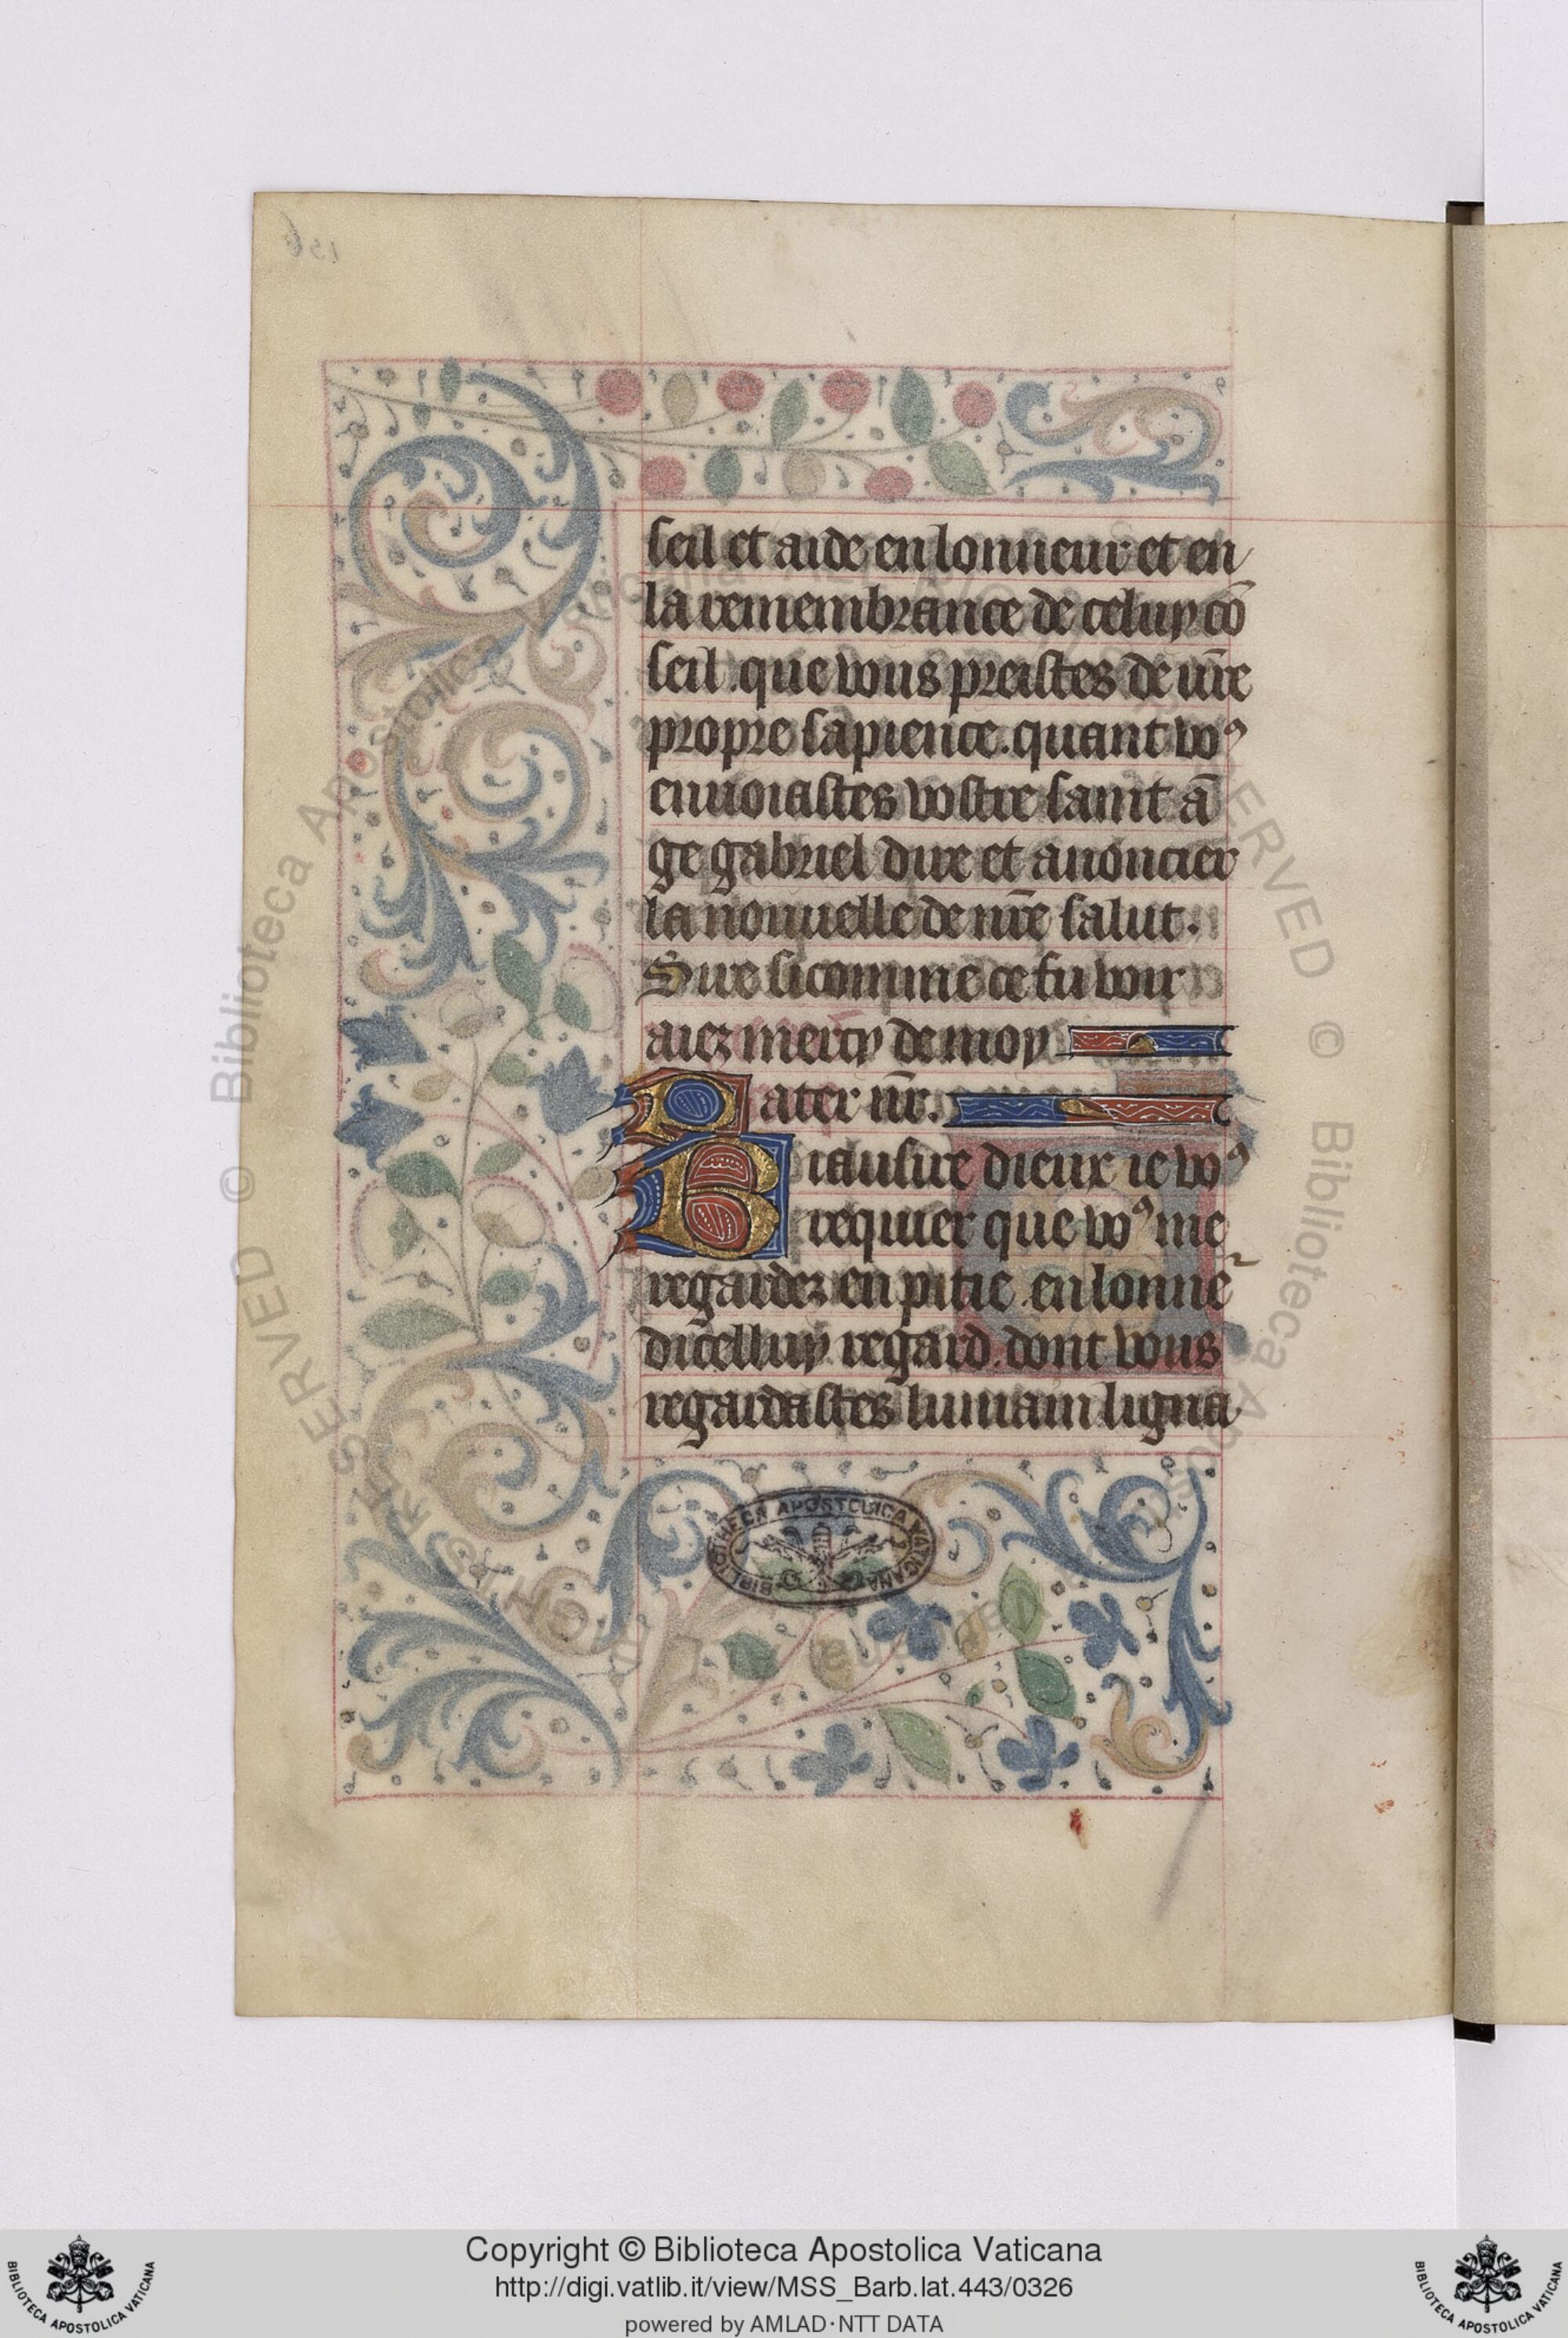 seil et aide en lonneur et en
la remembrance de celuy cō
seil .que vous preistes de nr̄e
propre sapience. quant voꝰ
enuoiastes vostre saint ā
ge gabriel dire et anoncier
la nouuelle de nr̄e salut.
Sire sicomme ce fu voir
aiez mercy de moy
Pater nr̄.
Biausire dieux ie voꝰ
requier que voꝰ me
regardez en pitie .en lonne
dicelluy regard. dont vous
regardastes humain ligna
BIBLIOTHECA APOSTOLICA VATICANA
Copyright © Biblioteca Apostolica Vaticana
http://digi.vatlib.it/view/MSS_Barb.lat.443/0326
powered by AMLAD·NTT DATA
BIBLIOTECA APOSTOLICA VATICANA
BIBLIOTECA APOSTOLICA VATICANA